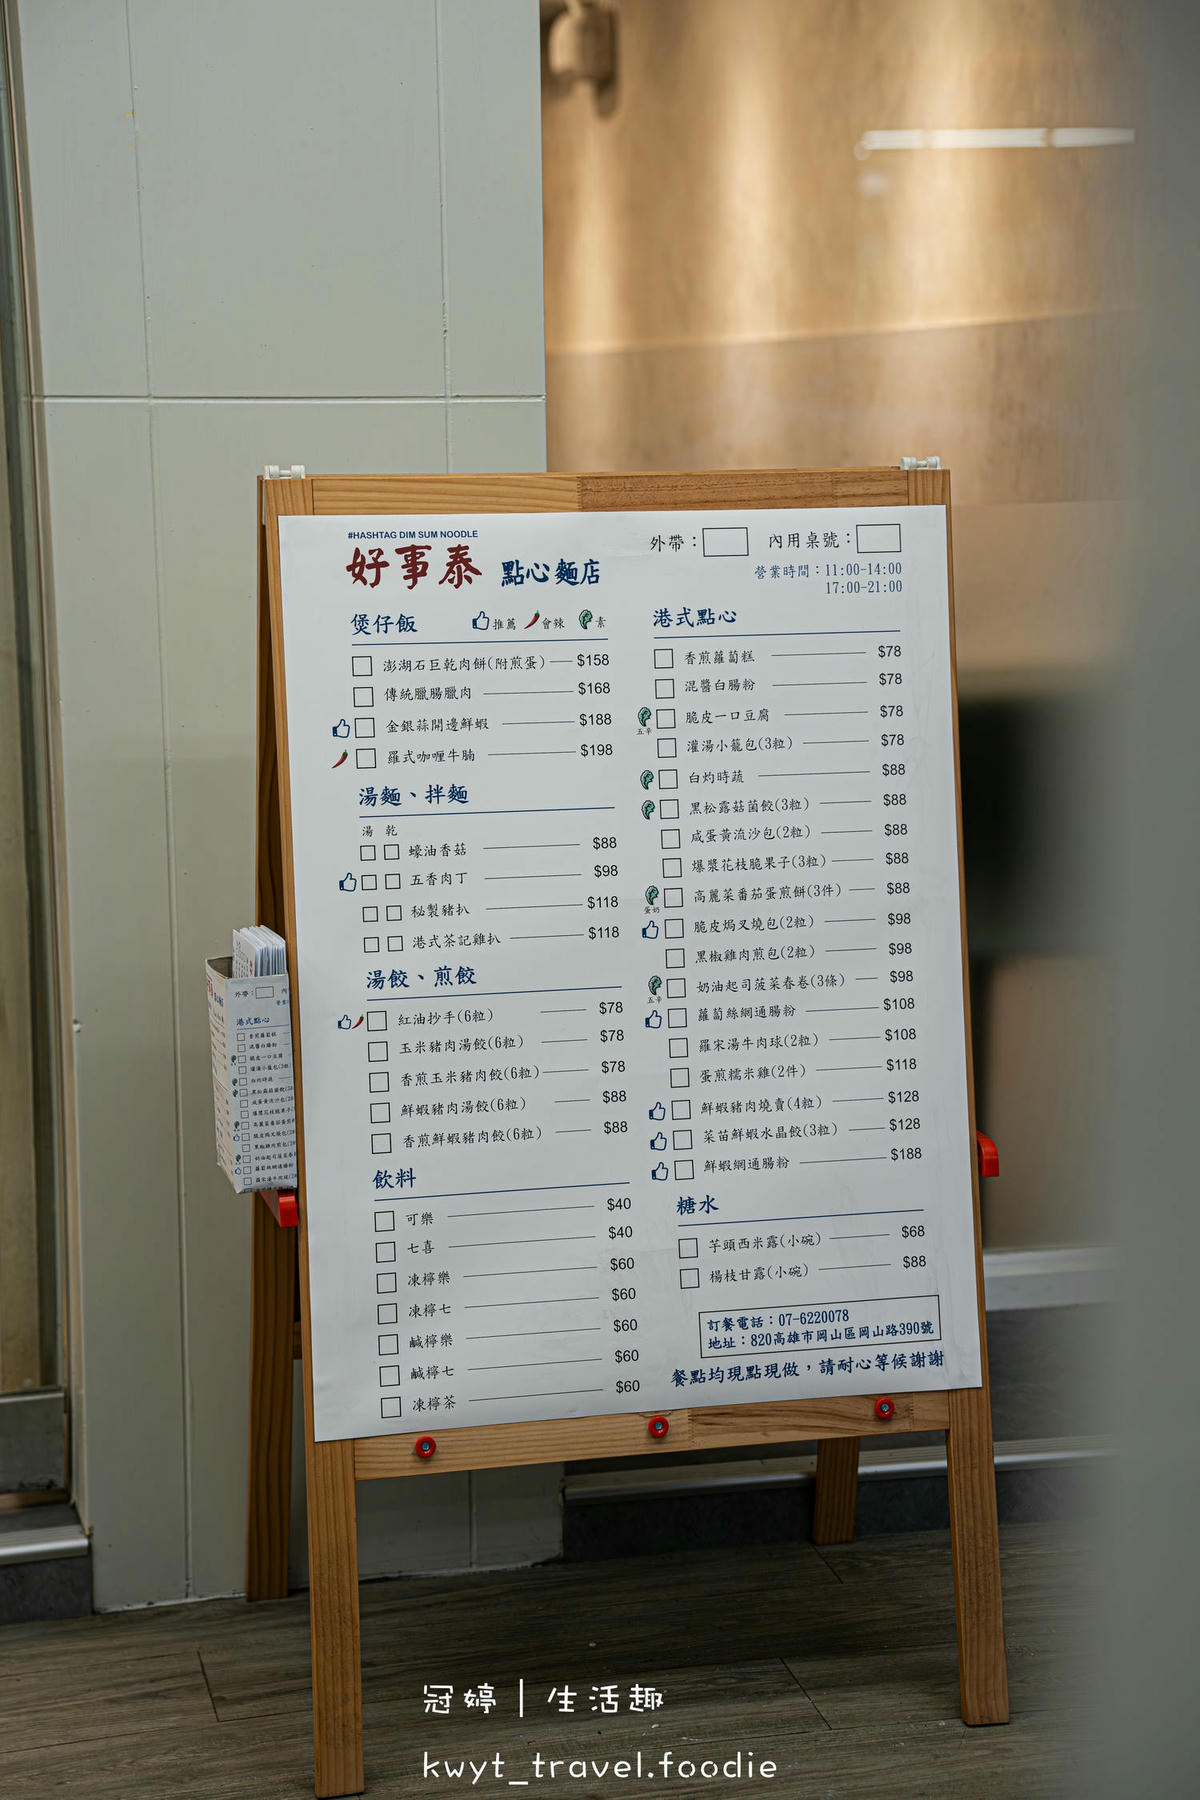 #HASHTAG DIM SUM NOODLE
好事泰 點心麵店
外帶： 內用桌號：
營業時間：11:00-14:00
17:00-21:00
煲仔飯 推薦 會辣 素
澎湖石巨乾肉餅(附煎蛋) $158
傳統臘腸臘肉 $168
金銀蒜開邊鮮蝦 $188
羅式咖喱牛腩 $198
湯麵、拌麵
湯 乾
蠔油香菇 $88
五香肉丁 $98
秘製豬扒 $118
港式茶記雞扒 $118
湯餃、煎餃
紅油抄手(6粒) $78
玉米豬肉湯餃(6粒) $78
香煎玉米豬肉餃(6粒) $78
鮮蝦豬肉湯餃(6粒) $88
香煎鮮蝦豬肉餃(6粒) $88
飲料
可樂 $40
七喜 $40
凍檸樂 $60
凍檸七 $60
鹹檸樂 $60
鹹檸七 $60
凍檸茶 $60
港式點心
香煎蘿蔔糕 $78
混醬白腸粉 $78
脆皮一口豆腐 $78
五辛
灌湯小籠包(3粒) $78
白灼時蔬 $88
黑松露菇菌餃(3粒) $88
咸蛋黃流沙包(2粒) $88
爆漿花枝脆果子(3粒) $88
高麗菜番茄蛋煎餅(3件) $88
蛋奶
脆皮焗叉燒包(2粒) $98
黑椒雞肉煎包(2粒) $98
奶油起司菠菜春卷(3條) $98
五辛
蘿蔔絲網通腸粉 $108
羅宋湯牛肉球(2粒) $108
蛋煎糯米雞(2件) $118
鮮蝦豬肉燒賣(4粒) $128
菜苗鮮蝦水晶餃(3粒) $128
鮮蝦網通腸粉 $188
糖水
芋頭西米露(小碗) $68
楊枝甘露(小碗) $88
訂餐電話：07-6220078
地址：820高雄市岡山區岡山路390號
餐點均現點現做，請耐心等候謝謝
外帶：
港式點心
冠婷｜生活趣
kwyt_travel.foodie